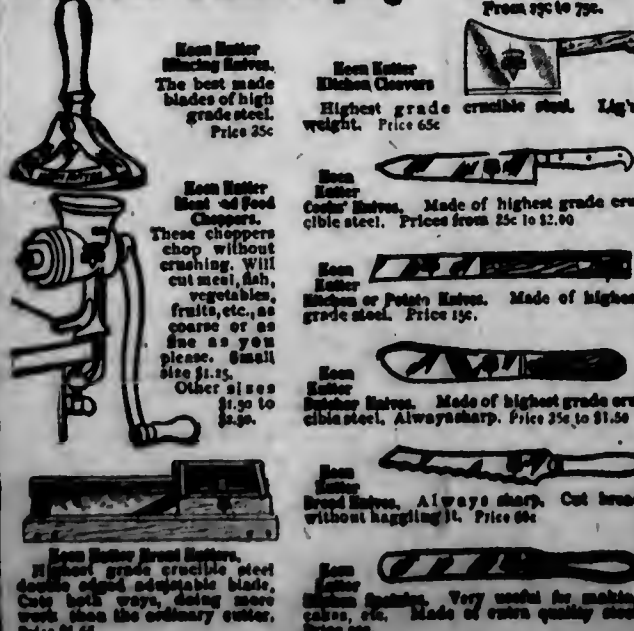 Keen Kutter
Mincing Knives.
The best made
blades of high
grade steel.
Price 25c
Keen Kutter
Meat and Food
Choppers.
These choppers
chop without
crushing. Will
cut meat, fish,
vegetables,
fruits, etc., as
coarse or as
fine as you
please. Small
size $1.25.
Other sizes
$1.50 to
$2.50.
Keen Kutter Kraut Kutters.
Highest grade crucible steel
double edged adjustable blade,
Cuts both ways, doing more
work than the ordinary cutter.
From 25c to 75c.
Keen Kutter
Kitchen Cleavers
Highest grade crucible steel. Lig
weight. Price 65c
Keen
Kutter
Cooks' Knives. Made of highest grade cru
cible steel. Prices from 25c to $2.00
Keen
Kutter
Kitchen or Potato Knives. Made of highes
grade steel. Price 15c.
Keen
Kutter
Butcher Knives. Made of highest grade cru
cible steel. Always sharp. Price 25c to $1.50
Keen
Kutter
Bread Knives. Always sharp. Cut brea
without haggling it. Price 60c
Keen
Kutter
Very useful for makin
cakes, etc. Made of extra quality stee